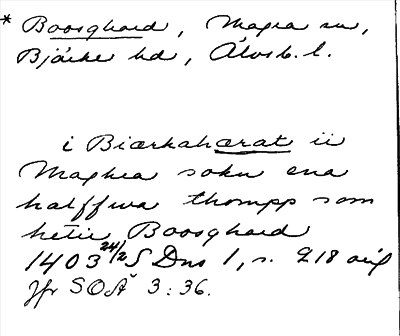 * Boosghard, Magra sn,
Bjärke hd, Älvsb. l.
i Biærkahærat ii
Maghra sokn ena
halffwa thompp som
hetir Boosghard
1403 24/2 SDns 1, s. 218 orig
Jfr SOÄ 3:36.